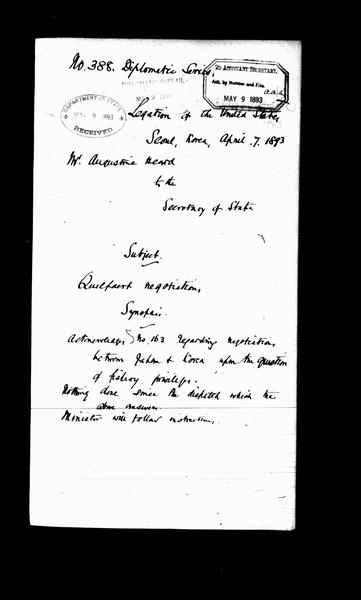 No. 388. Diplomatic Series,
2D ASSISTANT SECRETARY.
Ack. by Number and File.
MAY 9 1893
DIPLOMATIC BUREAU
MAY 9 1893
DEPARTMENT OF STATE
MAY 9 1893
RECEIVED
Legation of the United States,
Seoul, Korea, April 7. 1893
Mr. Augustine Heard
to the
Secretary of State
Subject.
Quelpaert negotiations
Synopsis.
Acknowledges No. 163 regarding negotiations
between Japan & Korea upon the question
of fishery privileges.
Nothing done since the dispatch which the
above answers.
Minister will follow instructions.